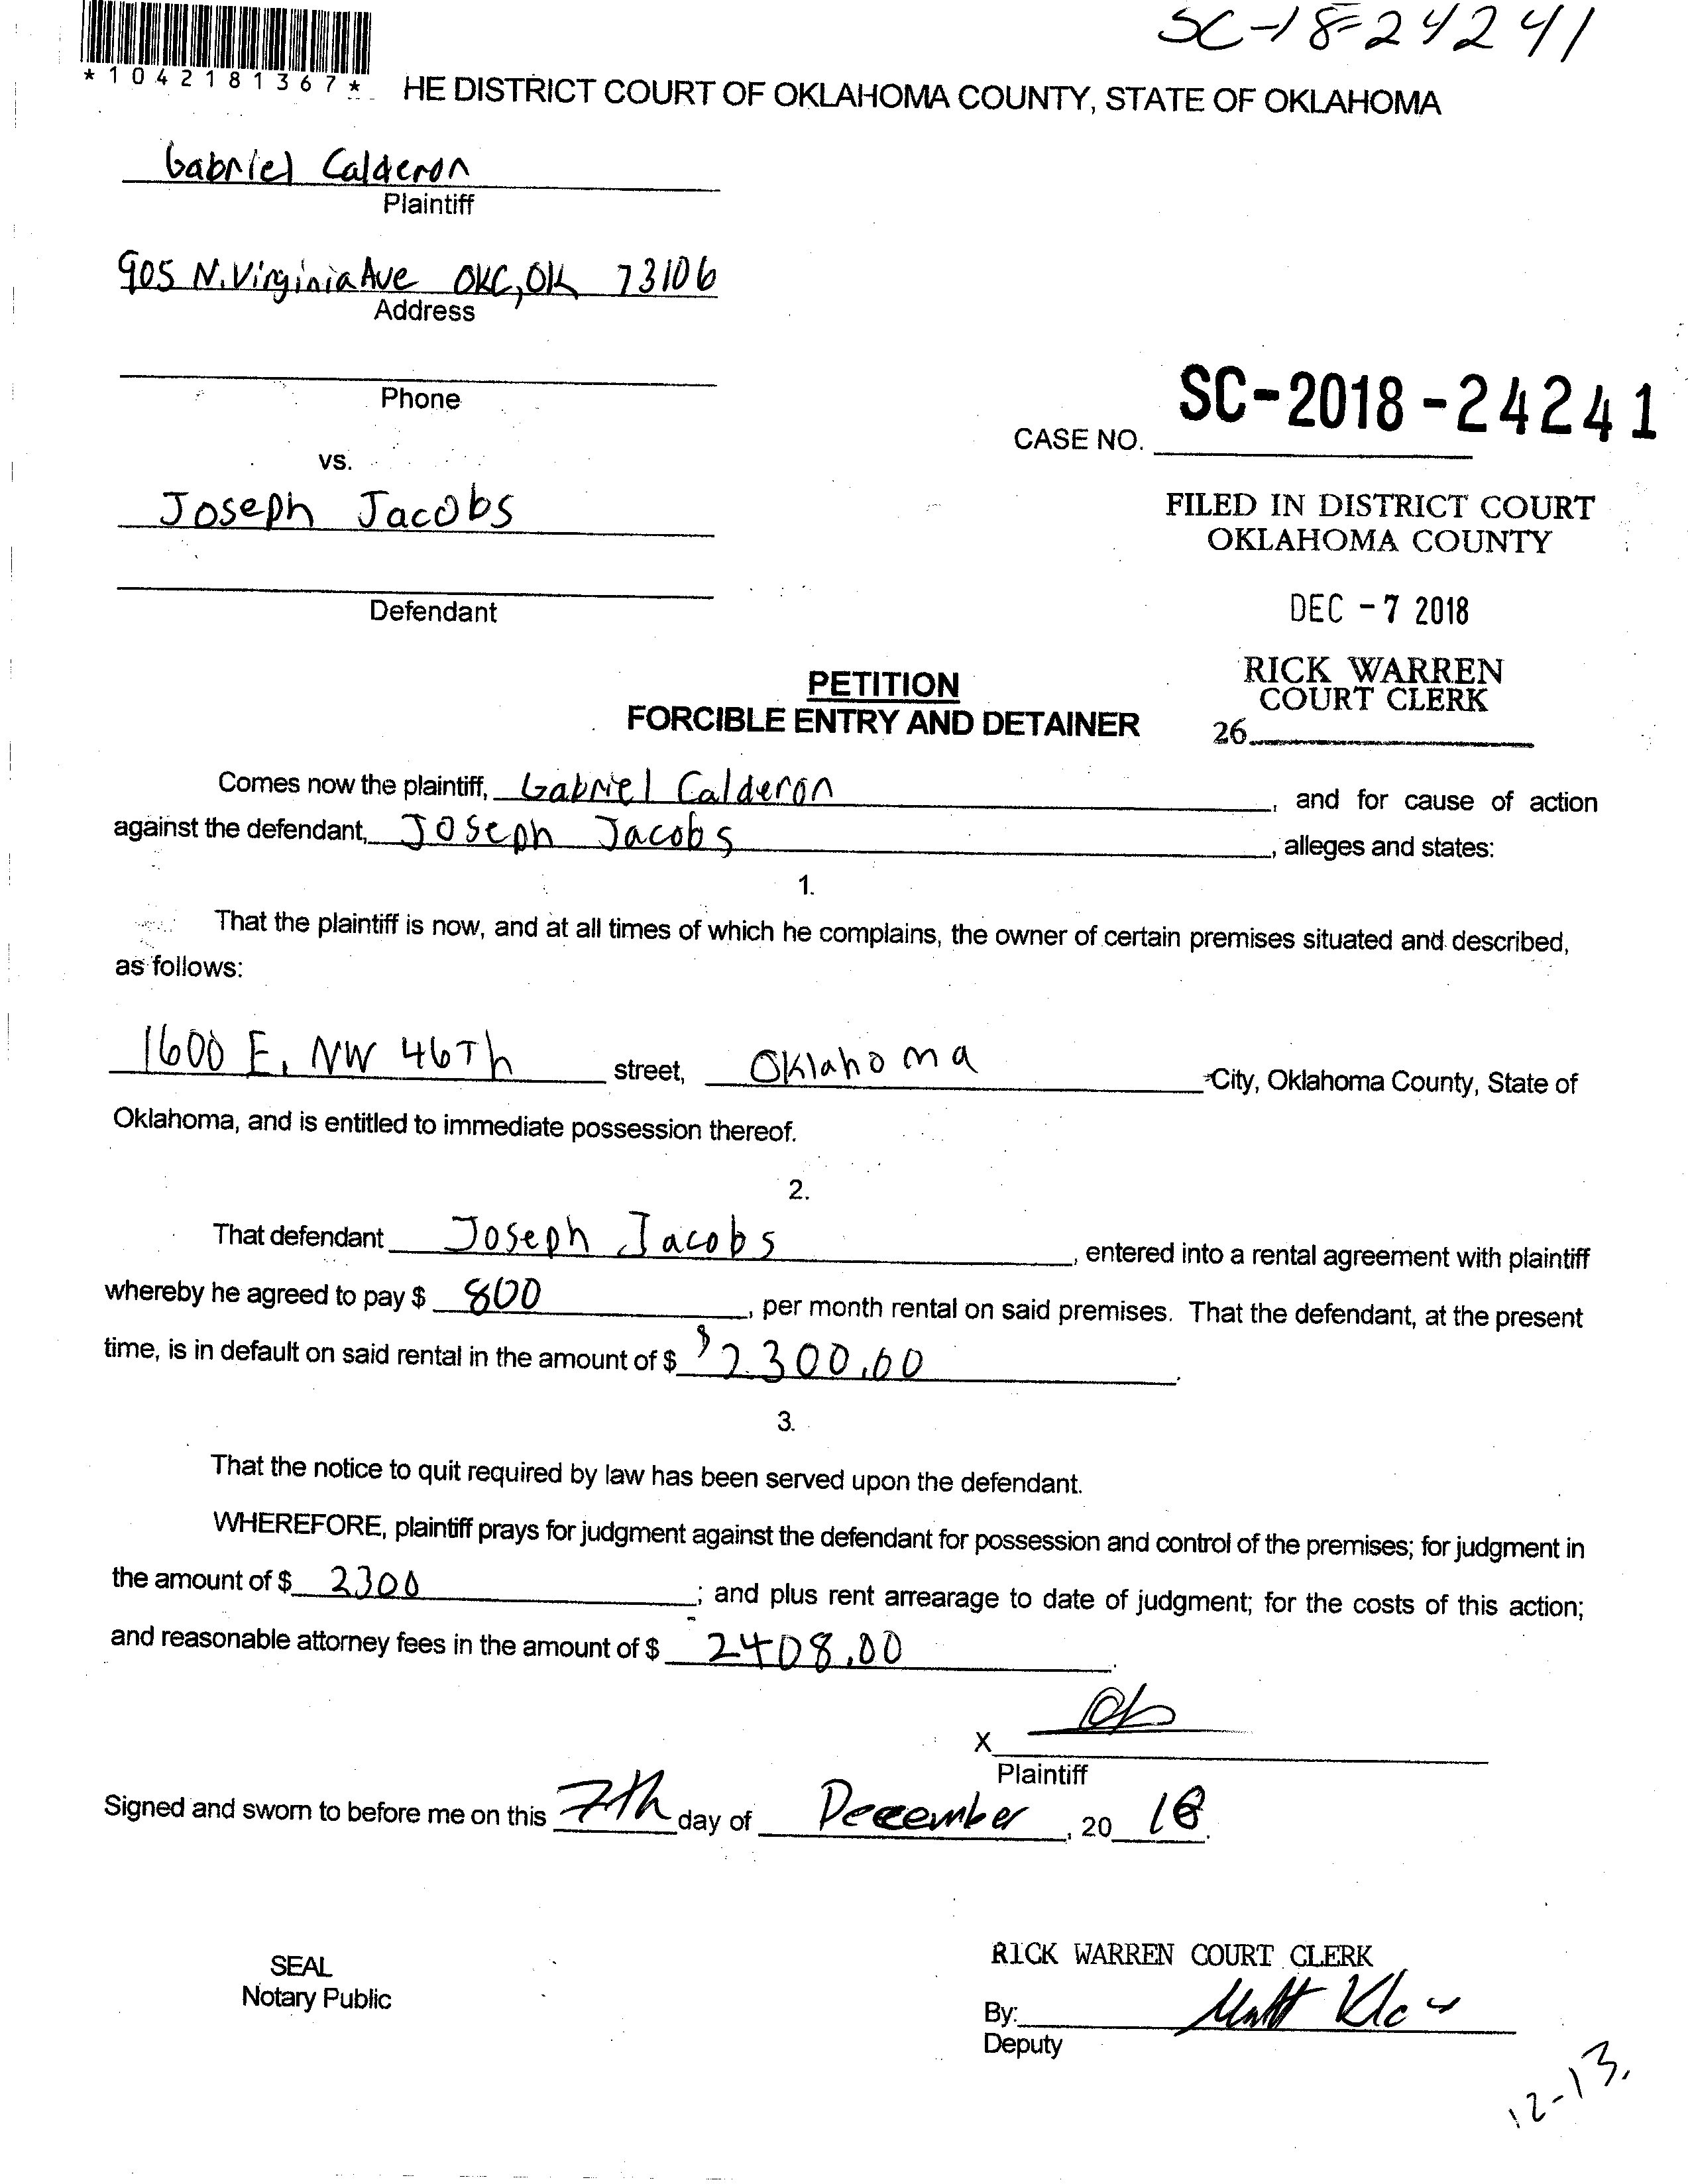 SC-18-24241
*1042181367*
HE DISTRICT COURT OF OKLAHOMA COUNTY, STATE OF OKLAHOMA
Gabriel Calderon
Plaintiff
905 N. Virginia Ave OKC, OK 73106
Address
Phone
SC-2018-24241
CASE NO.
vs.
Joseph Jacobs
FILED IN DISTRICT COURT
OKLAHOMA COUNTY
Defendant
DEC -7 2018
RICK WARREN
COURT CLERK
26
PETITION
FORCIBLE ENTRY AND DETAINER
Comes now the plaintiff, Gabriel Calderon, and for cause of action
against the defendant, Joseph Jacobs, alleges and states:
1.
That the plaintiff is now, and at all times of which he complains, the owner of certain premises situated and described,
as follows:
1600 E. NW 46Th street, Oklahoma City, Oklahoma County, State of
Oklahoma, and is entitled to immediate possession thereof.
2.
That defendant Joseph Jacobs, entered into a rental agreement with plaintiff
whereby he agreed to pay $ 800, per month rental on said premises. That the defendant, at the present
time, is in default on said rental in the amount of $ $2300.00.
3.
That the notice to quit required by law has been served upon the defendant.
WHEREFORE, plaintiff prays for judgment against the defendant for possession and control of the premises; for judgment in
the amount of $ 2300; and plus rent arrearage to date of judgment; for the costs of this action;
and reasonable attorney fees in the amount of $ 2408.00.
X
Plaintiff
Signed and sworn to before me on this 7th day of December, 20 18.
SEAL
Notary Public
RICK WARREN COURT CLERK
By: Matt
Deputy
12-13.